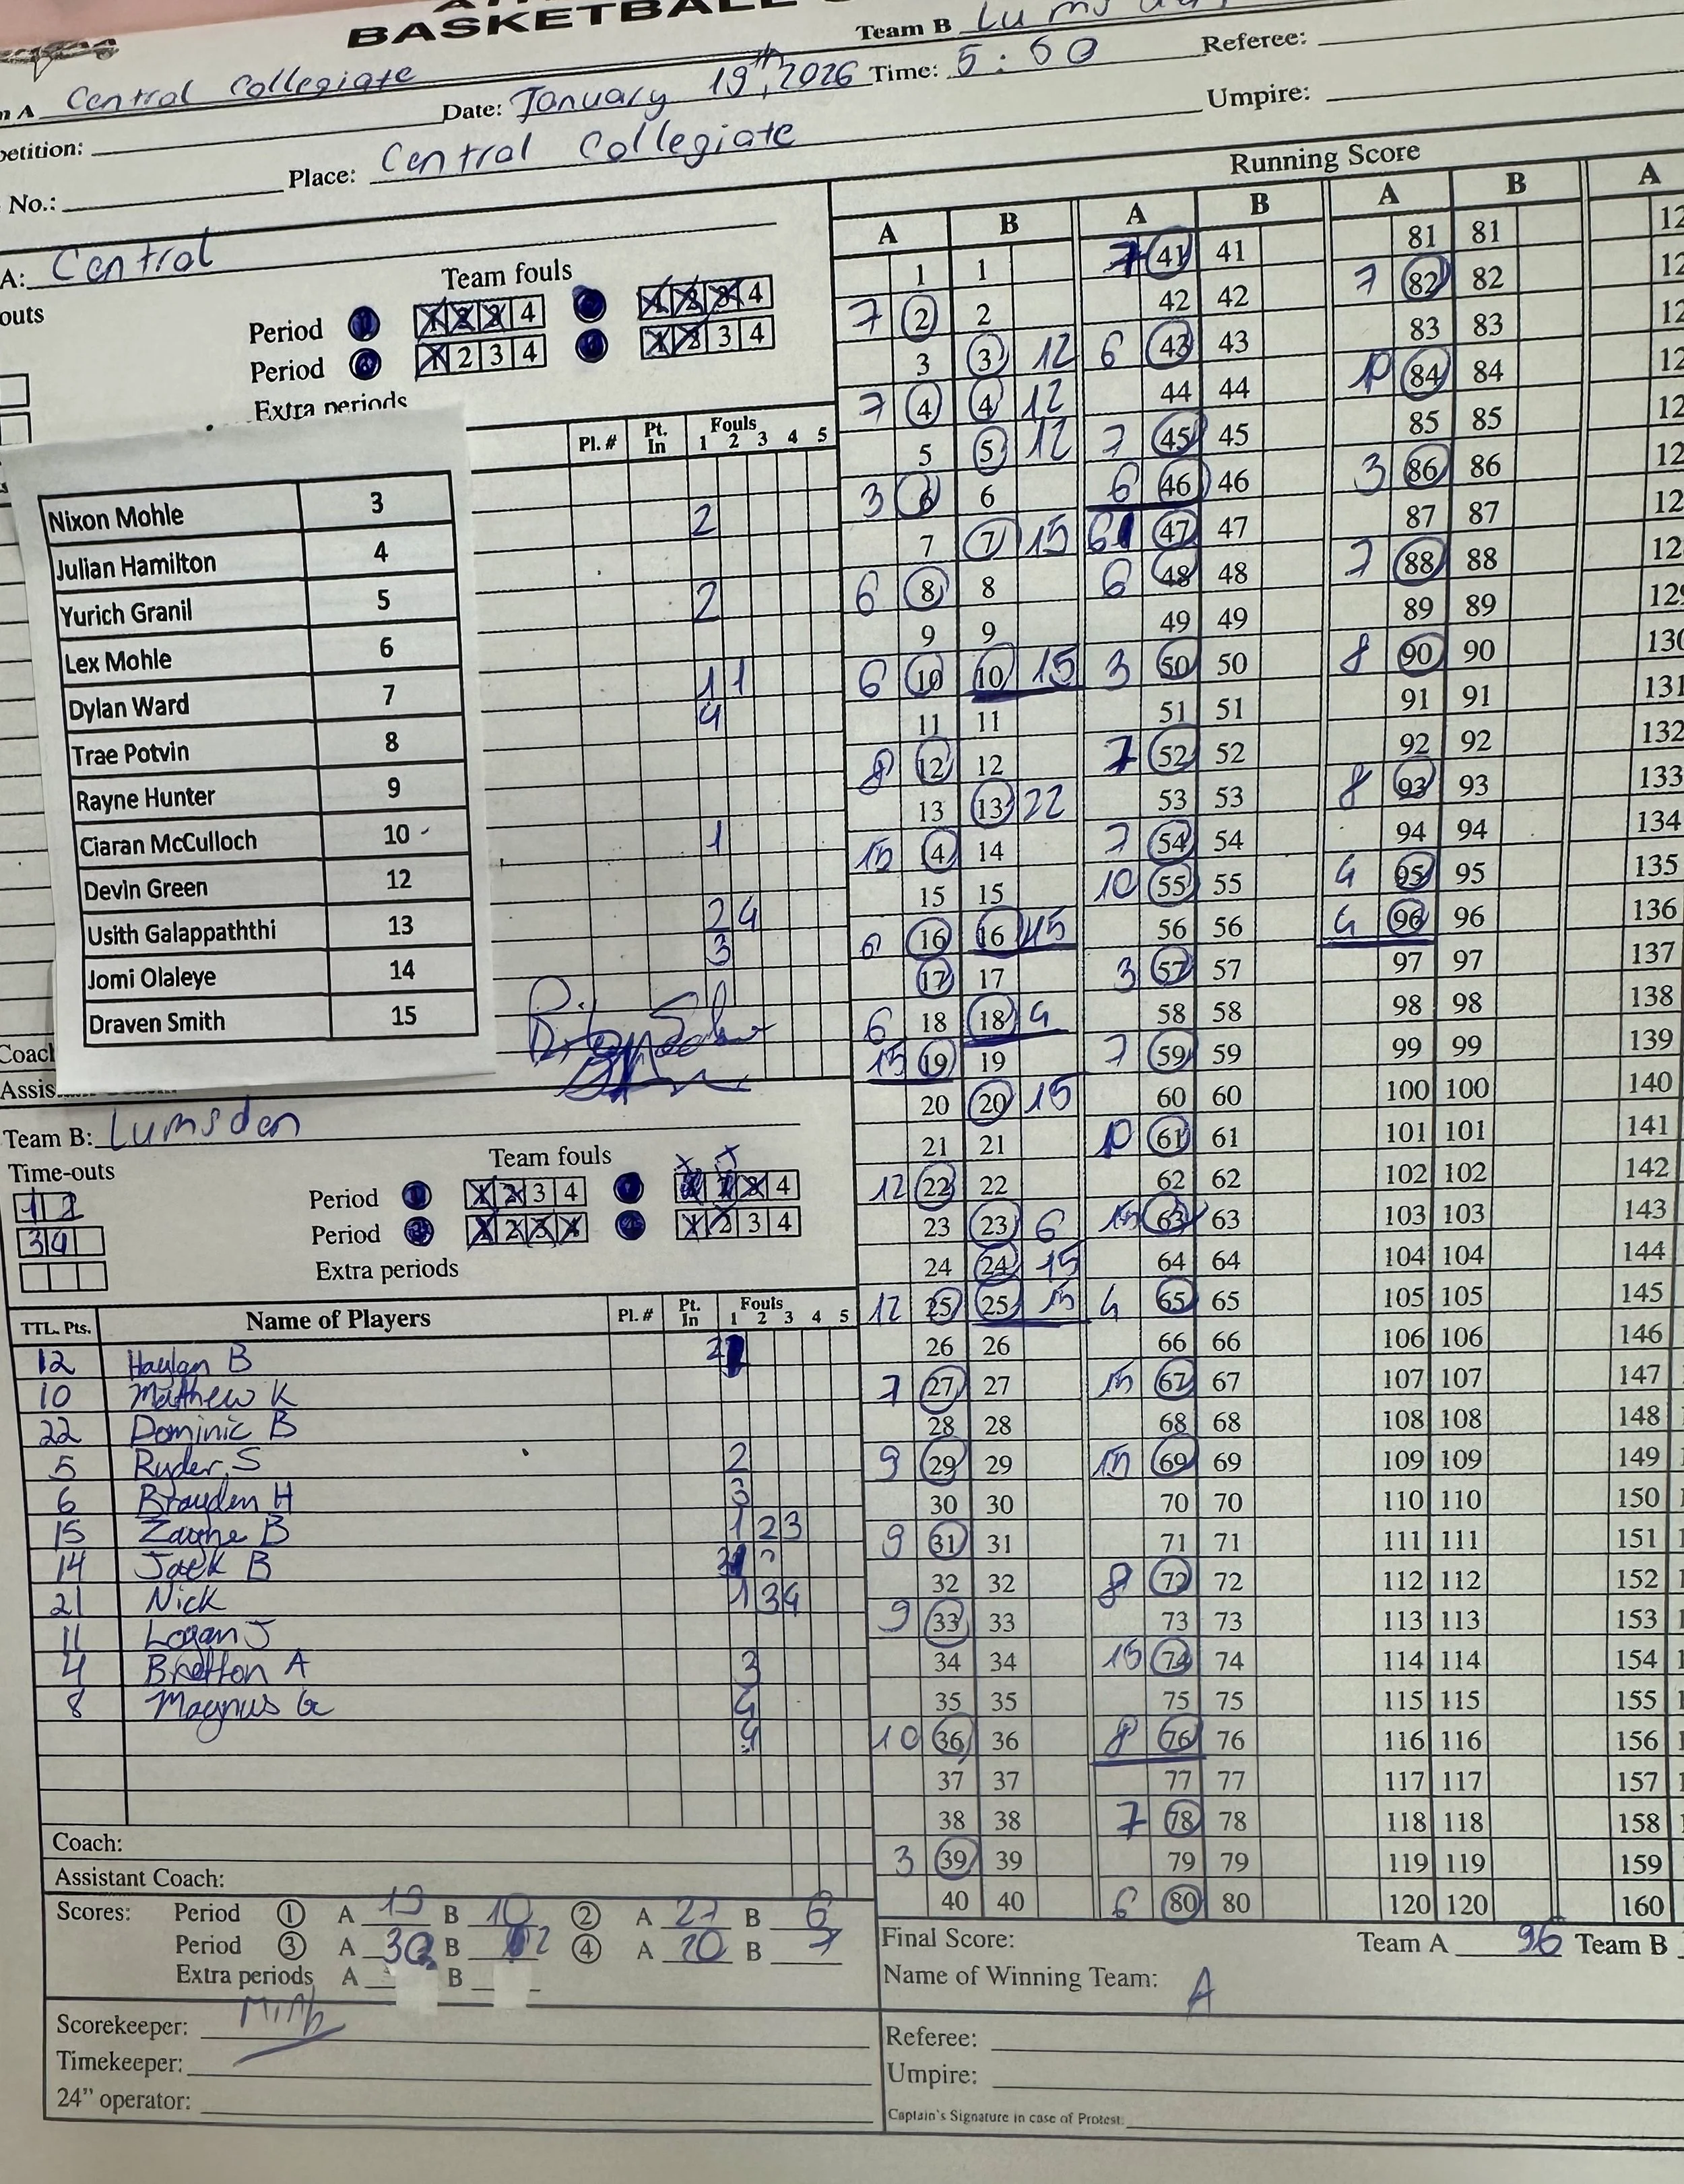 BASKETBALL
Team B
A Central Collegiate
Date: January 19th, 2026 Time: 5:50 Referee:
petition:
Place: Central Collegiate Umpire:
No.:
Running Score
A: Central
outs
Team fouls
Period 1 2 3 4 1 2 3 4
Period 1 2 3 4 1 2 3 4
Extra periods
Pl. # Pt. In Fouls 1 2 3 4 5
Nixon Mohle 3
Julian Hamilton 4 2
Yurich Granil 5
Lex Mohle 6 2
Dylan Ward 7
Trae Potvin 8 1 1
Rayne Hunter 9 4
Ciaran McCulloch 10
Devin Green 12 1
Usith Galappaththi 13
Jomi Olaleye 14 2 4
Draven Smith 15 3
Coach
Assis
Team B: Lumsden
Time-outs
1 2
3 4
Team fouls
Period 1 2 3 4 1 2 3 4
Period 1 2 3 4 1 2 3 4
Extra periods
TTL. Pts. Name of Players Pl. # Pt. In Fouls 1 2 3 4 5
12 Haylan B 2
10 Matthew K
22 Dominic B
5 Ryder S 2
6 Brayden H 3
15 Zayne B 1 2 3
14 Jack B
21 Nick 1 3 4
11 Logan J
4 Bretton A 3
8 Magnus G 4
4
Coach:
Assistant Coach:
Scores: Period 1 A 19 B 10 2 A 27 B 6
Period 3 A 30 B 2 4 A 20 B 7
Extra periods A B
Scorekeeper:
Timekeeper:
24" operator:
A B A B A B A
1 1 7 41 41 81 81
7 2 2 42 42 7 82 82
3 3 12 6 43 43 83 83
7 4 4 12 44 44 10 84 84
5 5 12 7 45 45 85 85
3 6 6 6 46 46 3 86 86
7 7 15 6 47 47 87 87
6 8 8 6 48 48 7 88 88
9 9 49 49 89 89
6 10 10 15 3 50 50 8 90 90 130
11 11 51 51 91 91 131
8 12 12 7 52 52 92 92 132
13 13 22 53 53 8 93 93 133
15 4 14 7 54 54 94 94 134
15 15 10 55 55 4 95 95 135
6 16 16 15 56 56 4 96 96 136
17 17 3 57 57 97 97 137
6 18 18 4 58 58 98 98 138
15 19 19 7 59 59 99 99 139
20 20 15 60 60 100 100 140
21 21 10 61 61 101 101 141
12 22 22 62 62 102 102 142
23 23 6 15 63 63 103 103 143
24 24 15 64 64 104 104 144
12 25 25 15 4 65 65 105 105 145
26 26 66 66 106 106 146
7 27 27 15 67 67 107 107 147
28 28 68 68 108 108 148
9 29 29 15 69 69 109 109 149
30 30 70 70 110 110 150
9 31 31 71 71 111 111 151
32 32 8 72 72 112 112 152
9 33 33 73 73 113 113 153
34 34 15 74 74 114 114 154
35 35 75 75 115 115 155
10 36 36 8 76 76 116 116 156
37 37 77 77 117 117 157
38 38 7 78 78 118 118 158
3 39 39 79 79 119 119 159
40 40 6 80 80 120 120 160
Final Score: Team A 96 Team B
Name of Winning Team: A
Referee:
Umpire:
Captain's Signature in case of Protest: